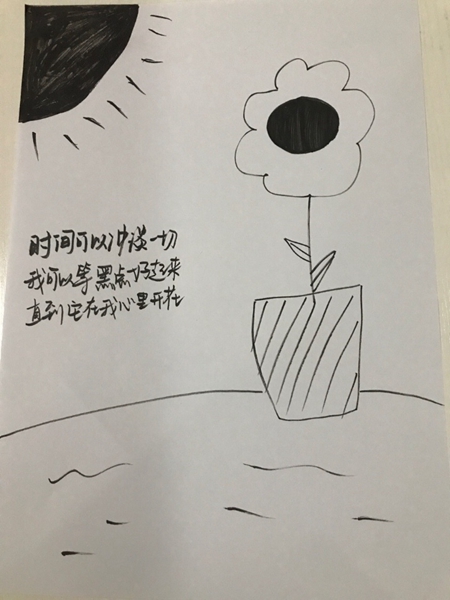 时间可以冲淡一切
我可以等黑点好起来
直到它在我心里开花